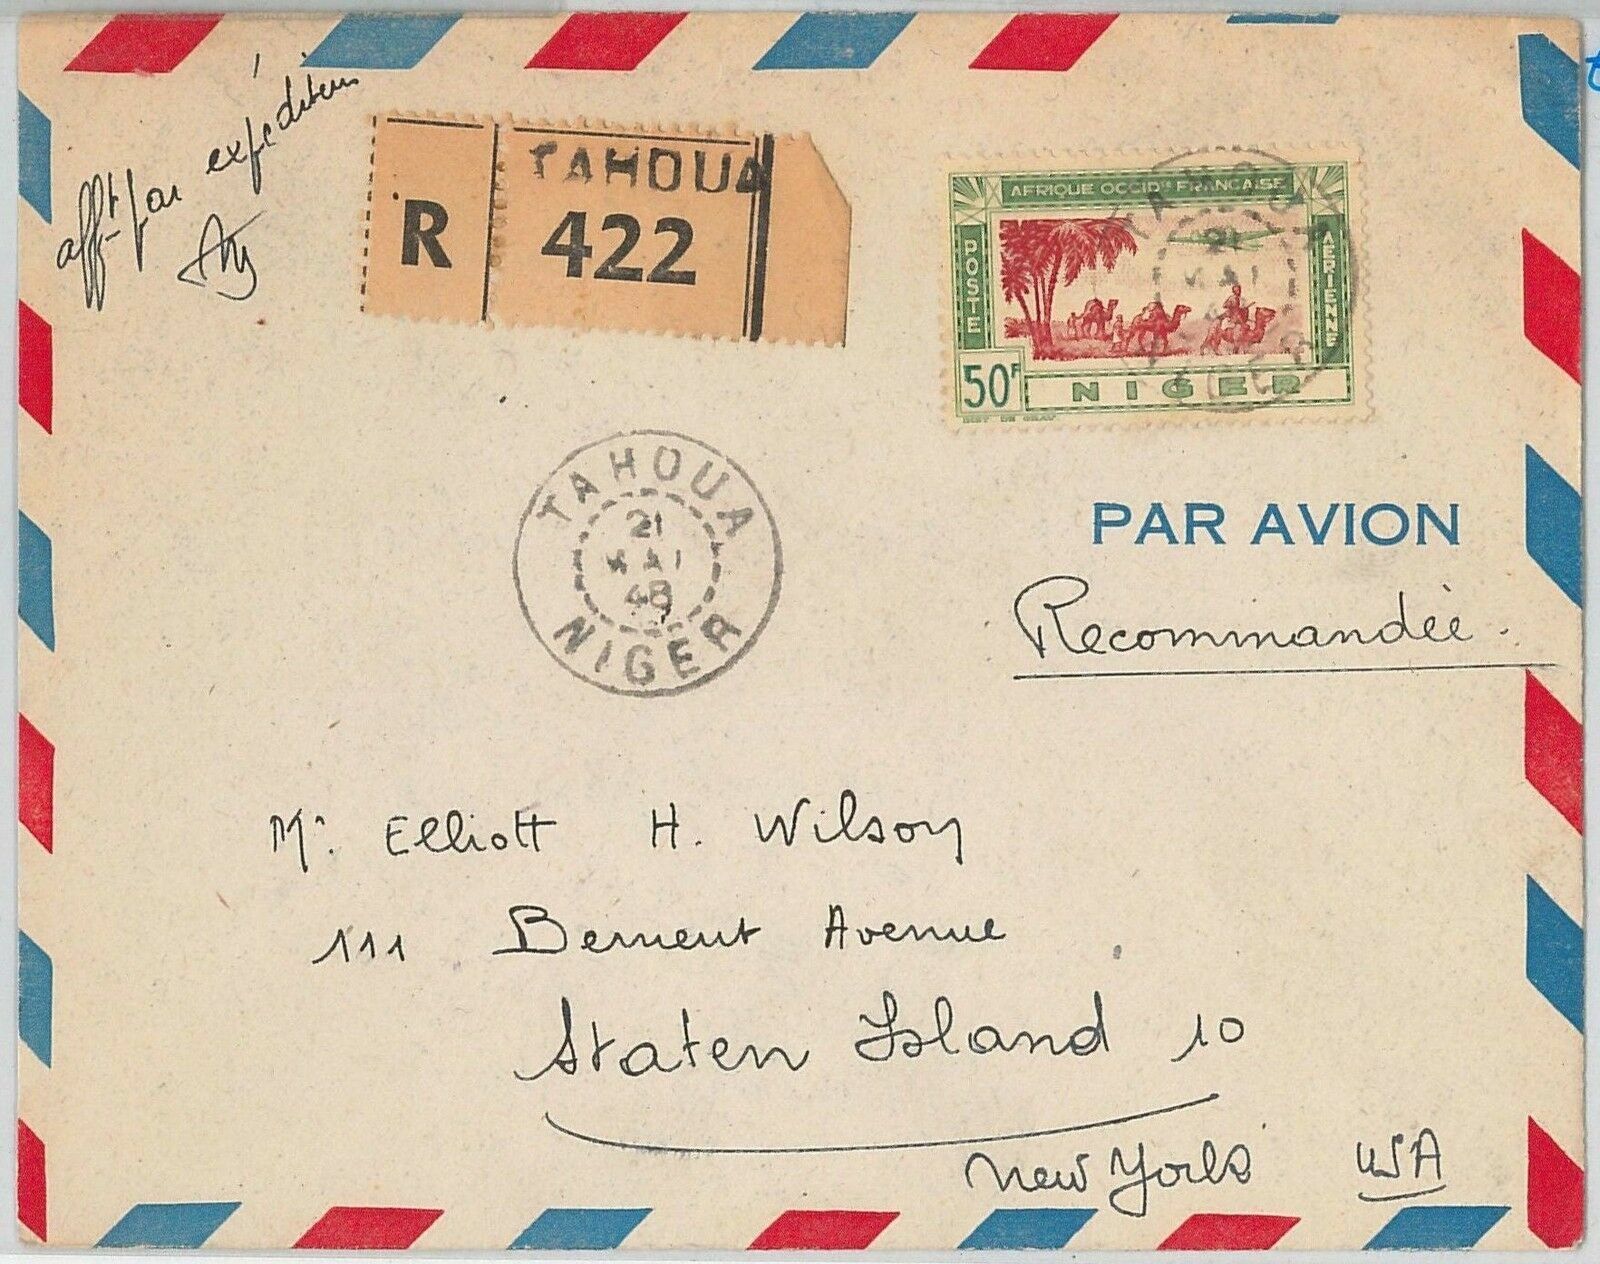 afft par expéditeur
R
TAHOUA
422
AFRIQUE OCCID^le FRANCAISE
POSTE
AERIENNE
50F
NIGER
TAHOUA
21
MAI
NIGER
PAR AVION
Recommandée.
TAHOUA
21
MAI
48
NIGER
Mr. Elliott H. Wilson
111 Bement Avenue
Staten Island 10
New York USA